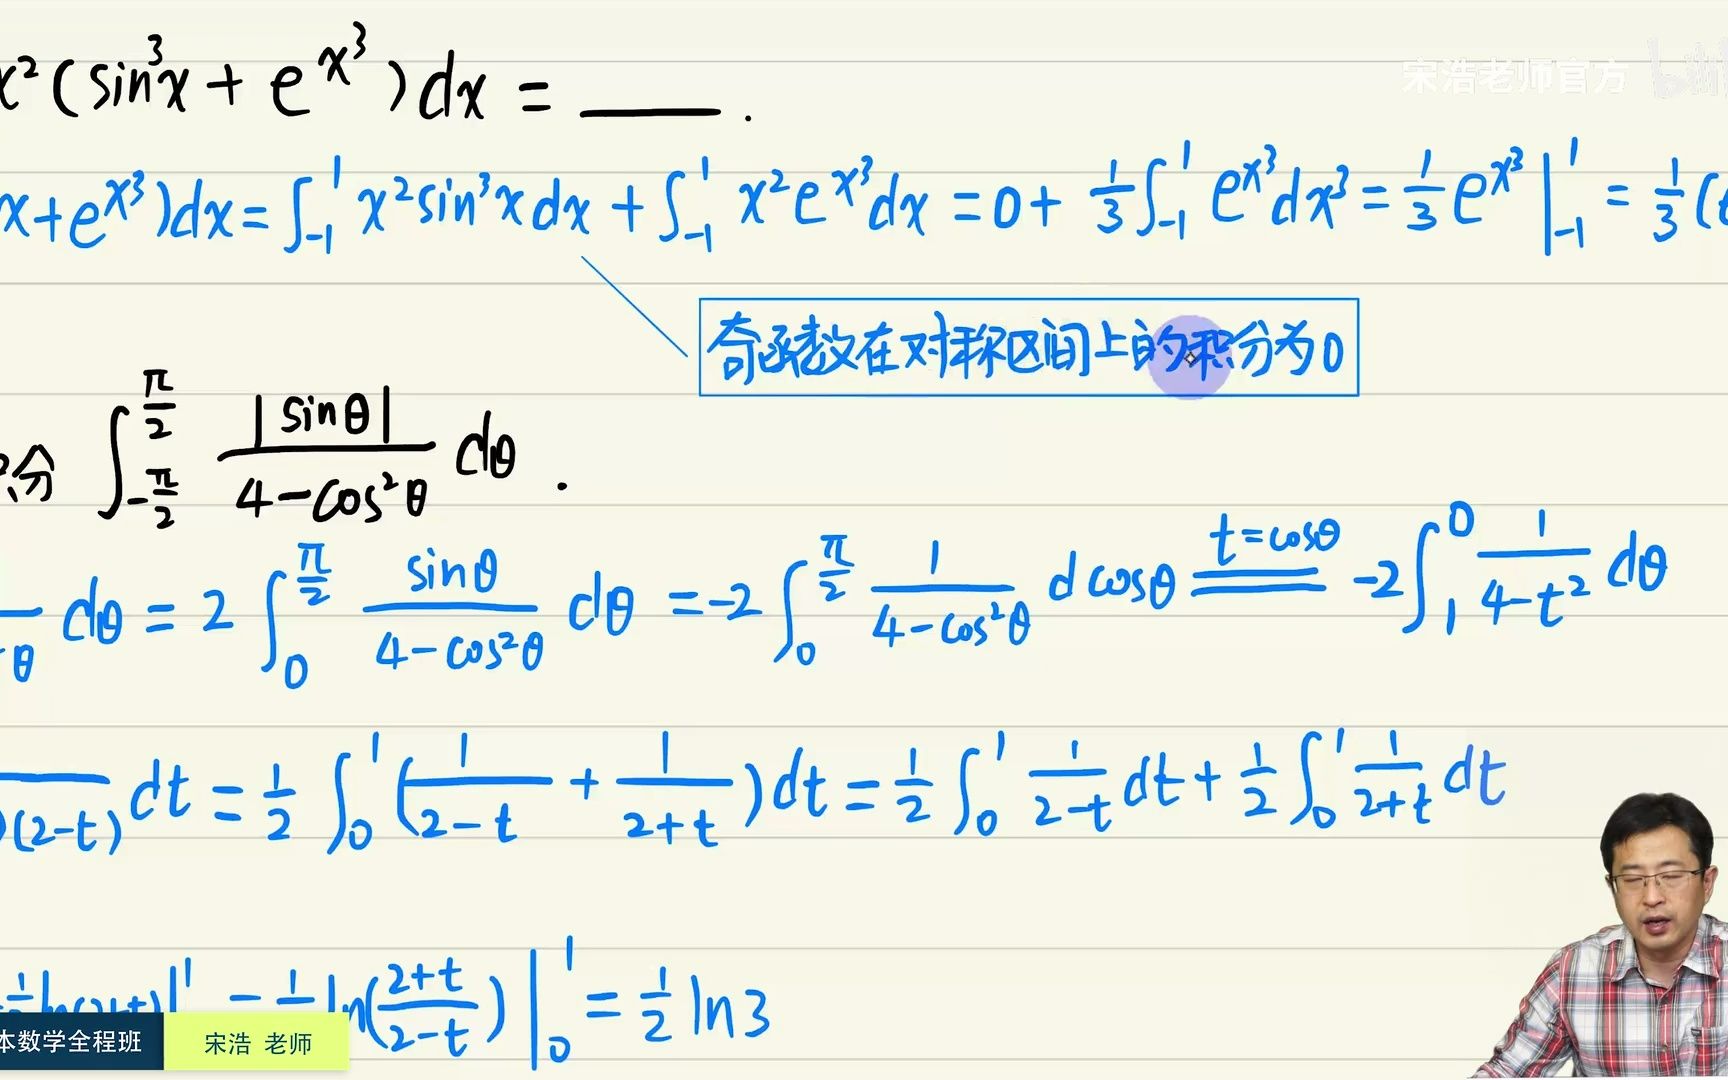 宋浩老师官方 bili
x²(sin³x + e^{x³})dx = ____.
x+e^{x³})dx = ∫_{-1}^{1} x²sin³x dx + ∫_{-1}^{1} x²e^{x³}dx = 0 + 1/3 ∫_{-1}^{1} e^{x³}dx³ = 1/3 e^{x³} |_{-1}^{1} = 1/3 (
奇函数在对称区间上的积分为0
积分 ∫_{-π/2}^{π/2} |sinθ|/(4-cos²θ) dθ.
θ dθ = 2 ∫_{0}^{π/2} sinθ/(4-cos²θ) dθ = -2 ∫_{0}^{π/2} 1/(4-cos²θ) d cosθ \xlongequal{t=cosθ} -2 ∫_{1}^{0} 1/(4-t²) dθ
)(2-t) dt = 1/2 ∫_{0}^{1} (1/(2-t) + 1/(2+t))dt = 1/2 ∫_{0}^{1} 1/(2-t) dt + 1/2 ∫_{0}^{1} 1/(2+t) dt
ln((2+t)/(2-t)) |_{0}^{1} = 1/2 ln3
本数学全程班 宋浩 老师